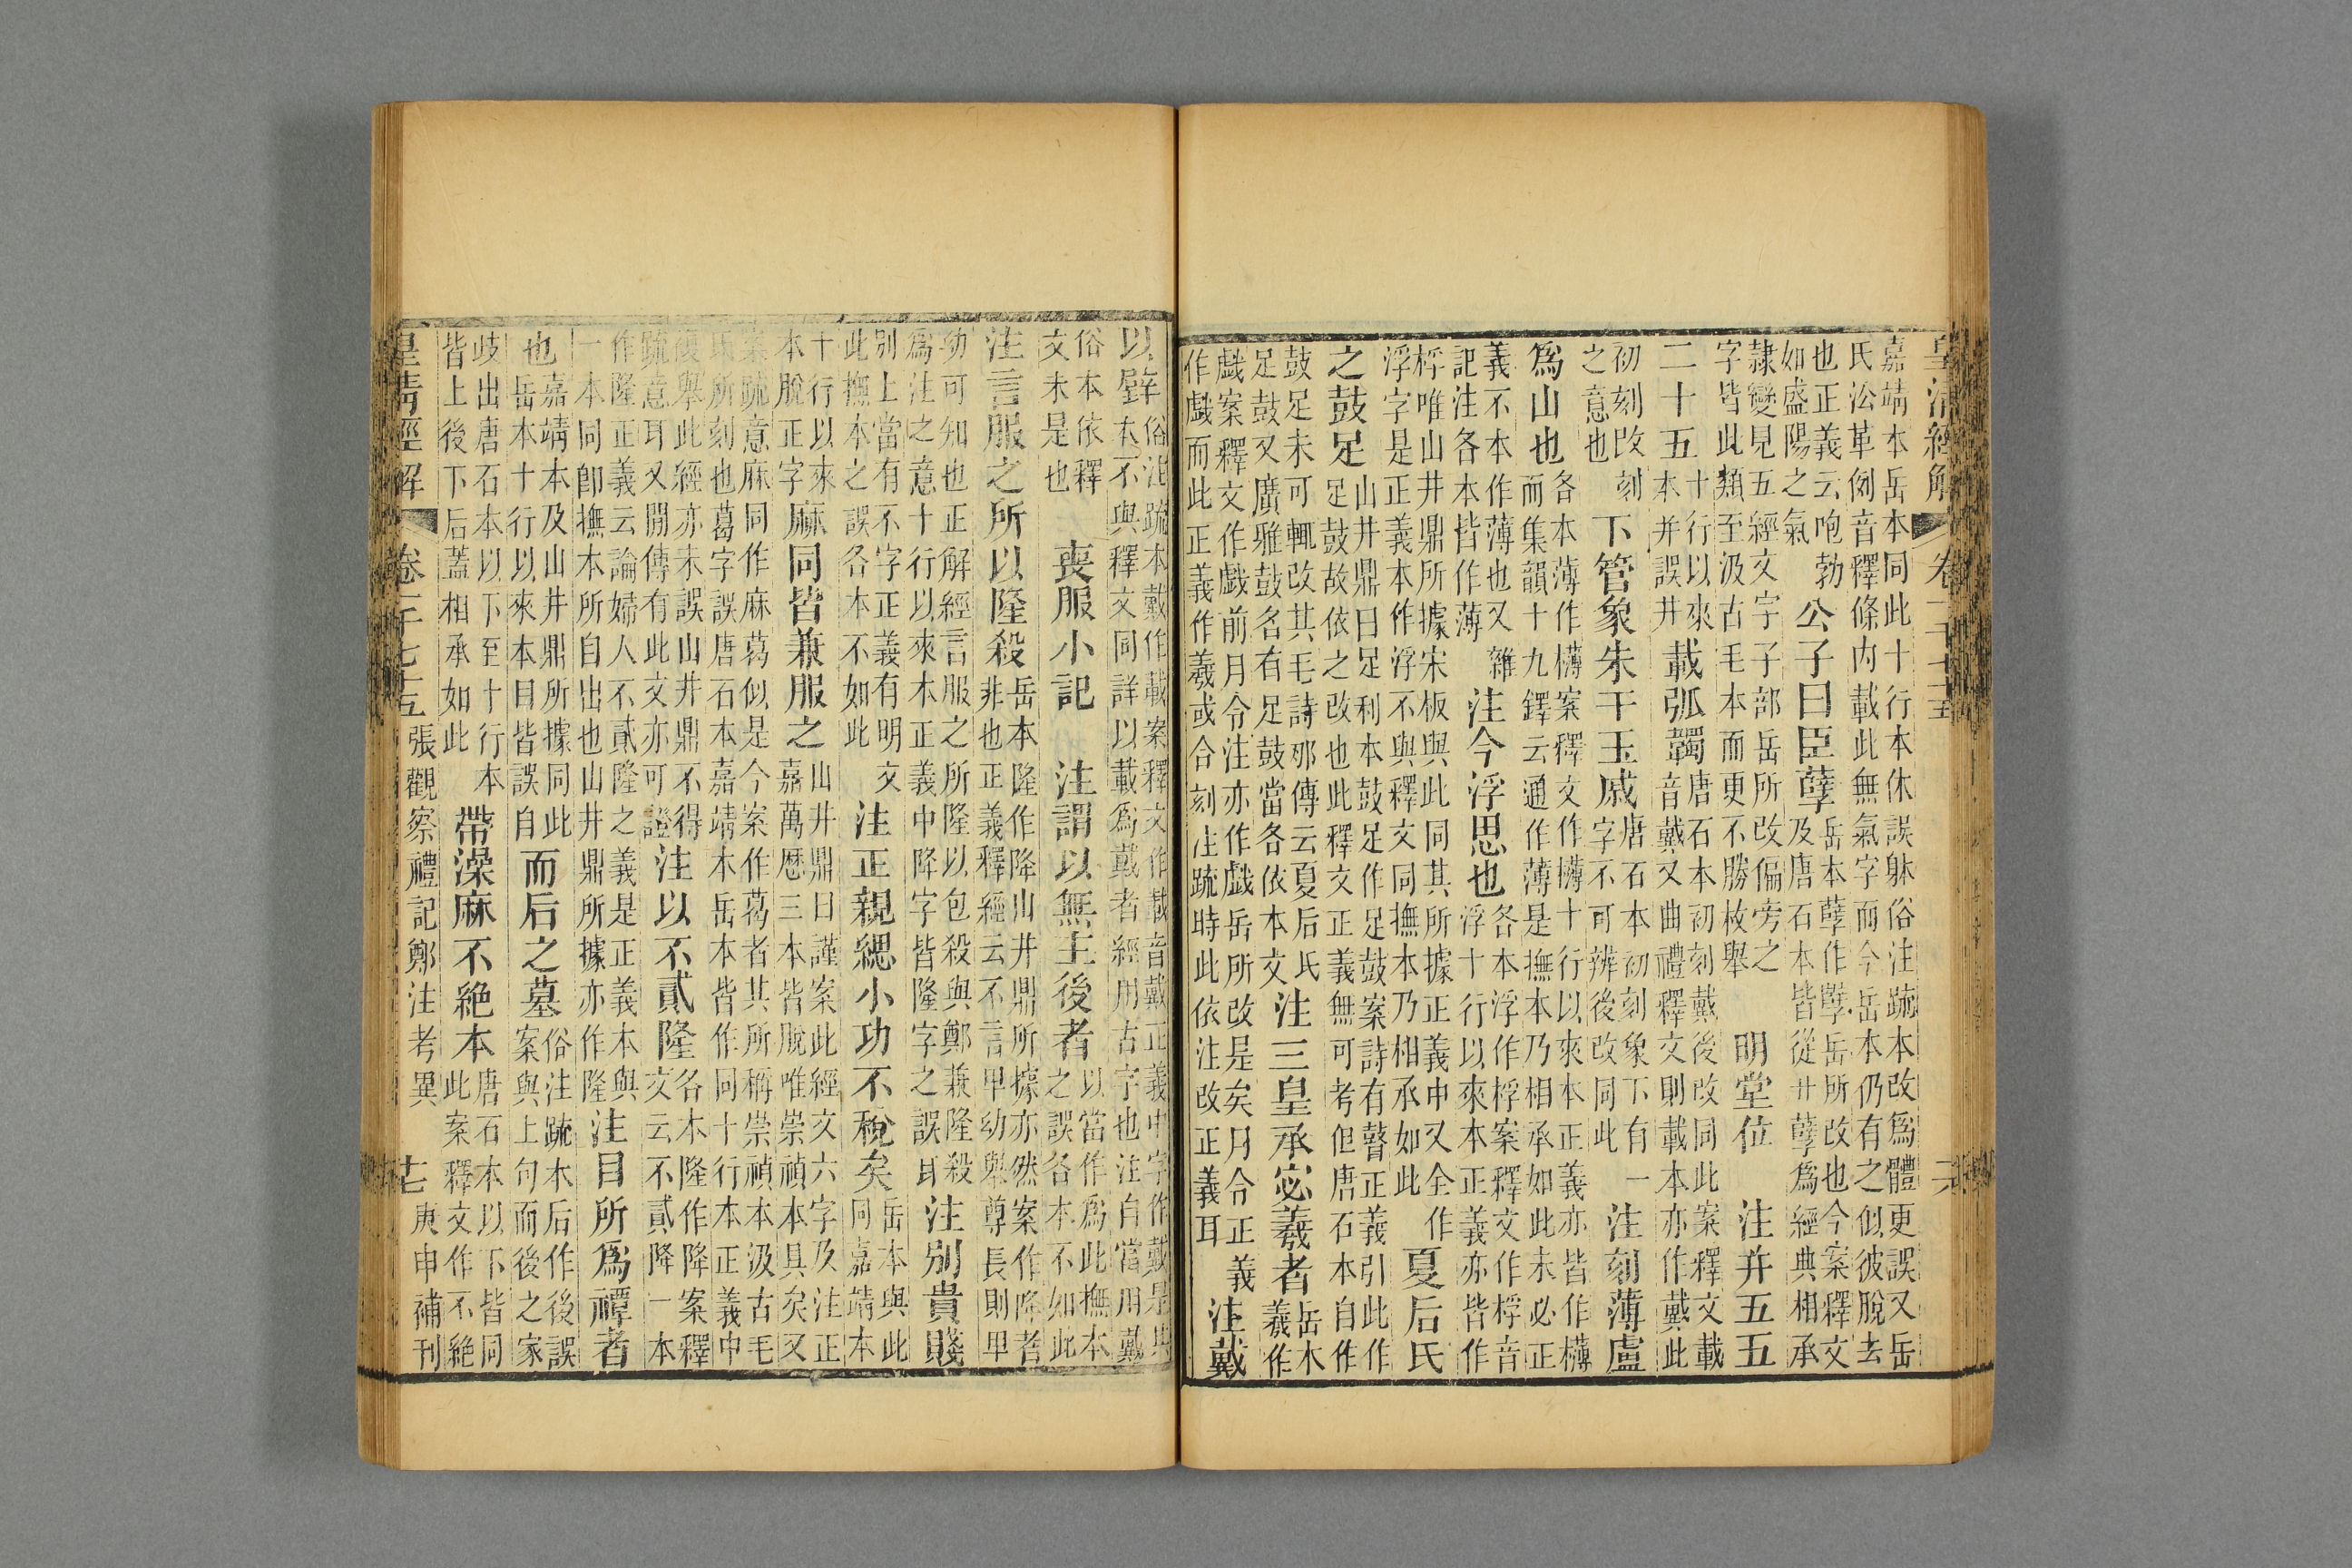 皇清經解 卷一千七十五 六
嘉靖本岳本同此十行本休誤躰俗注疏本改爲體更誤又岳
氏㳂革例音釋條内載此無氣字而今岳本仍有之似彼脫去
也正義云咆勃如盛陽之氣 公子曰臣孽 岳本孽作孼岳所改也今案釋文及唐石本皆從廾孽爲經典相承
隷變見五經文字子部岳所改偏旁之字皆此類至汲古毛本而更不勝枚舉 明堂位 注并五五
二十五 十行以來本并誤井 載弧韣 唐石本初刻戴後改同此案釋文載音戴又曲禮釋文則載本亦作戴此
初刻改刻之意也 下管象朱干玉戚 唐石本初刻象下有一字不可辨後改同此 注刻薄盧
爲山也 各本薄作欂案釋文作欂十行以來本正義亦皆作欂而集韻十九鐸云通作薄是撫本乃相承如此未必正
義不本作薄也又雜記注各本皆作薄 注今浮思也 各本浮作桴案釋文作桴音浮十行以來本正義亦皆作
桴唯山井鼎所據宋板與此同其所據正義中又全作浮字是正義本作浮不與釋文同撫本乃相承如此 夏后氏
之鼓足 山井鼎曰足利本鼓足作足鼓案詩有瞽正義引此作足鼓故依之改也此釋文正義無可考但唐石本自作
鼓足未可輒改其毛詩邪傳云夏后氏足鼓又廣雅鼓名有足鼓當各依本文 注三皇承宓羲者 岳本羲作
戲案釋文作戲前月令注亦作戲岳所改是矣月令正義作戲而此正義作羲或合刻注疏時此依注改正義耳 注戴
以辟 俗注疏本戴作載案釋文作載音戴正義中字作戴是與本不與釋文同詳以載爲戴者經用古字也注自當用戴
俗本依釋文未是也 喪服小記 注謂以無主後者 以當作爲此撫本之誤各本不如此
注言服之所以隆殺 岳本隆作降山井鼎所據亦然案作降者非也正義釋經云不言卑幼舉尊長則卑
幼可知也正解經言服之所隆以包殺與鄭兼隆殺爲注之意十行以來本正義中降字皆隆字之誤耳 注別貴賤
別上當有不字正義有明文此撫本之誤各本不如此 注正親緦小功不稅矣 岳本與此同嘉靖本
十行以來本脫正字 麻同皆兼服之 山井鼎曰謹案此經文六字及注正嘉萬厯三本皆脫唯崇禎本具矣又
案疏意麻同作麻葛似是今案作葛者其所稱崇禎本汲古毛氏所刻也葛字誤唐石本嘉靖本岳本皆作同十行本正義中
復舉此經亦未誤山井鼎不得疏意耳又閒傳有此文亦可證 注以不貳隆 各本隆作降案釋文云不貳降一本
作隆正義云論婦人不貳隆之義是正義本與一本同即撫本所自出也山井鼎所據亦作隆 注目所爲禫者
也 嘉靖本及山井鼎所據同此岳本十行以來本目皆誤自 而后之墓 俗注疏本后作後誤案與上句而後之家
歧出唐石本以下至十行本皆上後下后蓋相承如此 帶澡麻不絶本 唐石本以下皆同此案釋文作不絶
皇清經解 卷一千七十五 張觀察禮記鄭注考異 十七 庚申補刊